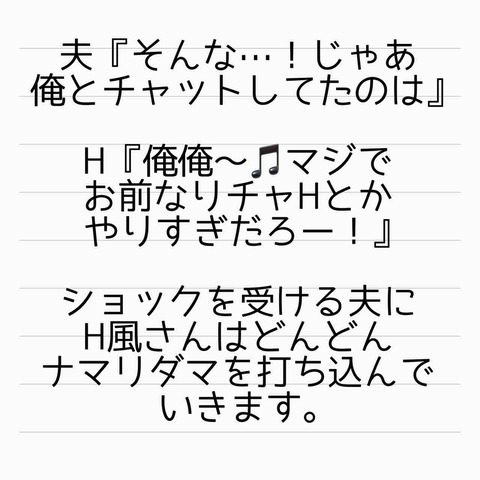 夫『そんな…！じゃあ
俺とチャットしてたのは』
H『俺俺〜🎵マジで
お前なりチャHとか
やりすぎだろー！』
ショックを受ける夫に
H風さんはどんどん
ナマリダマを打ち込んで
いきます。